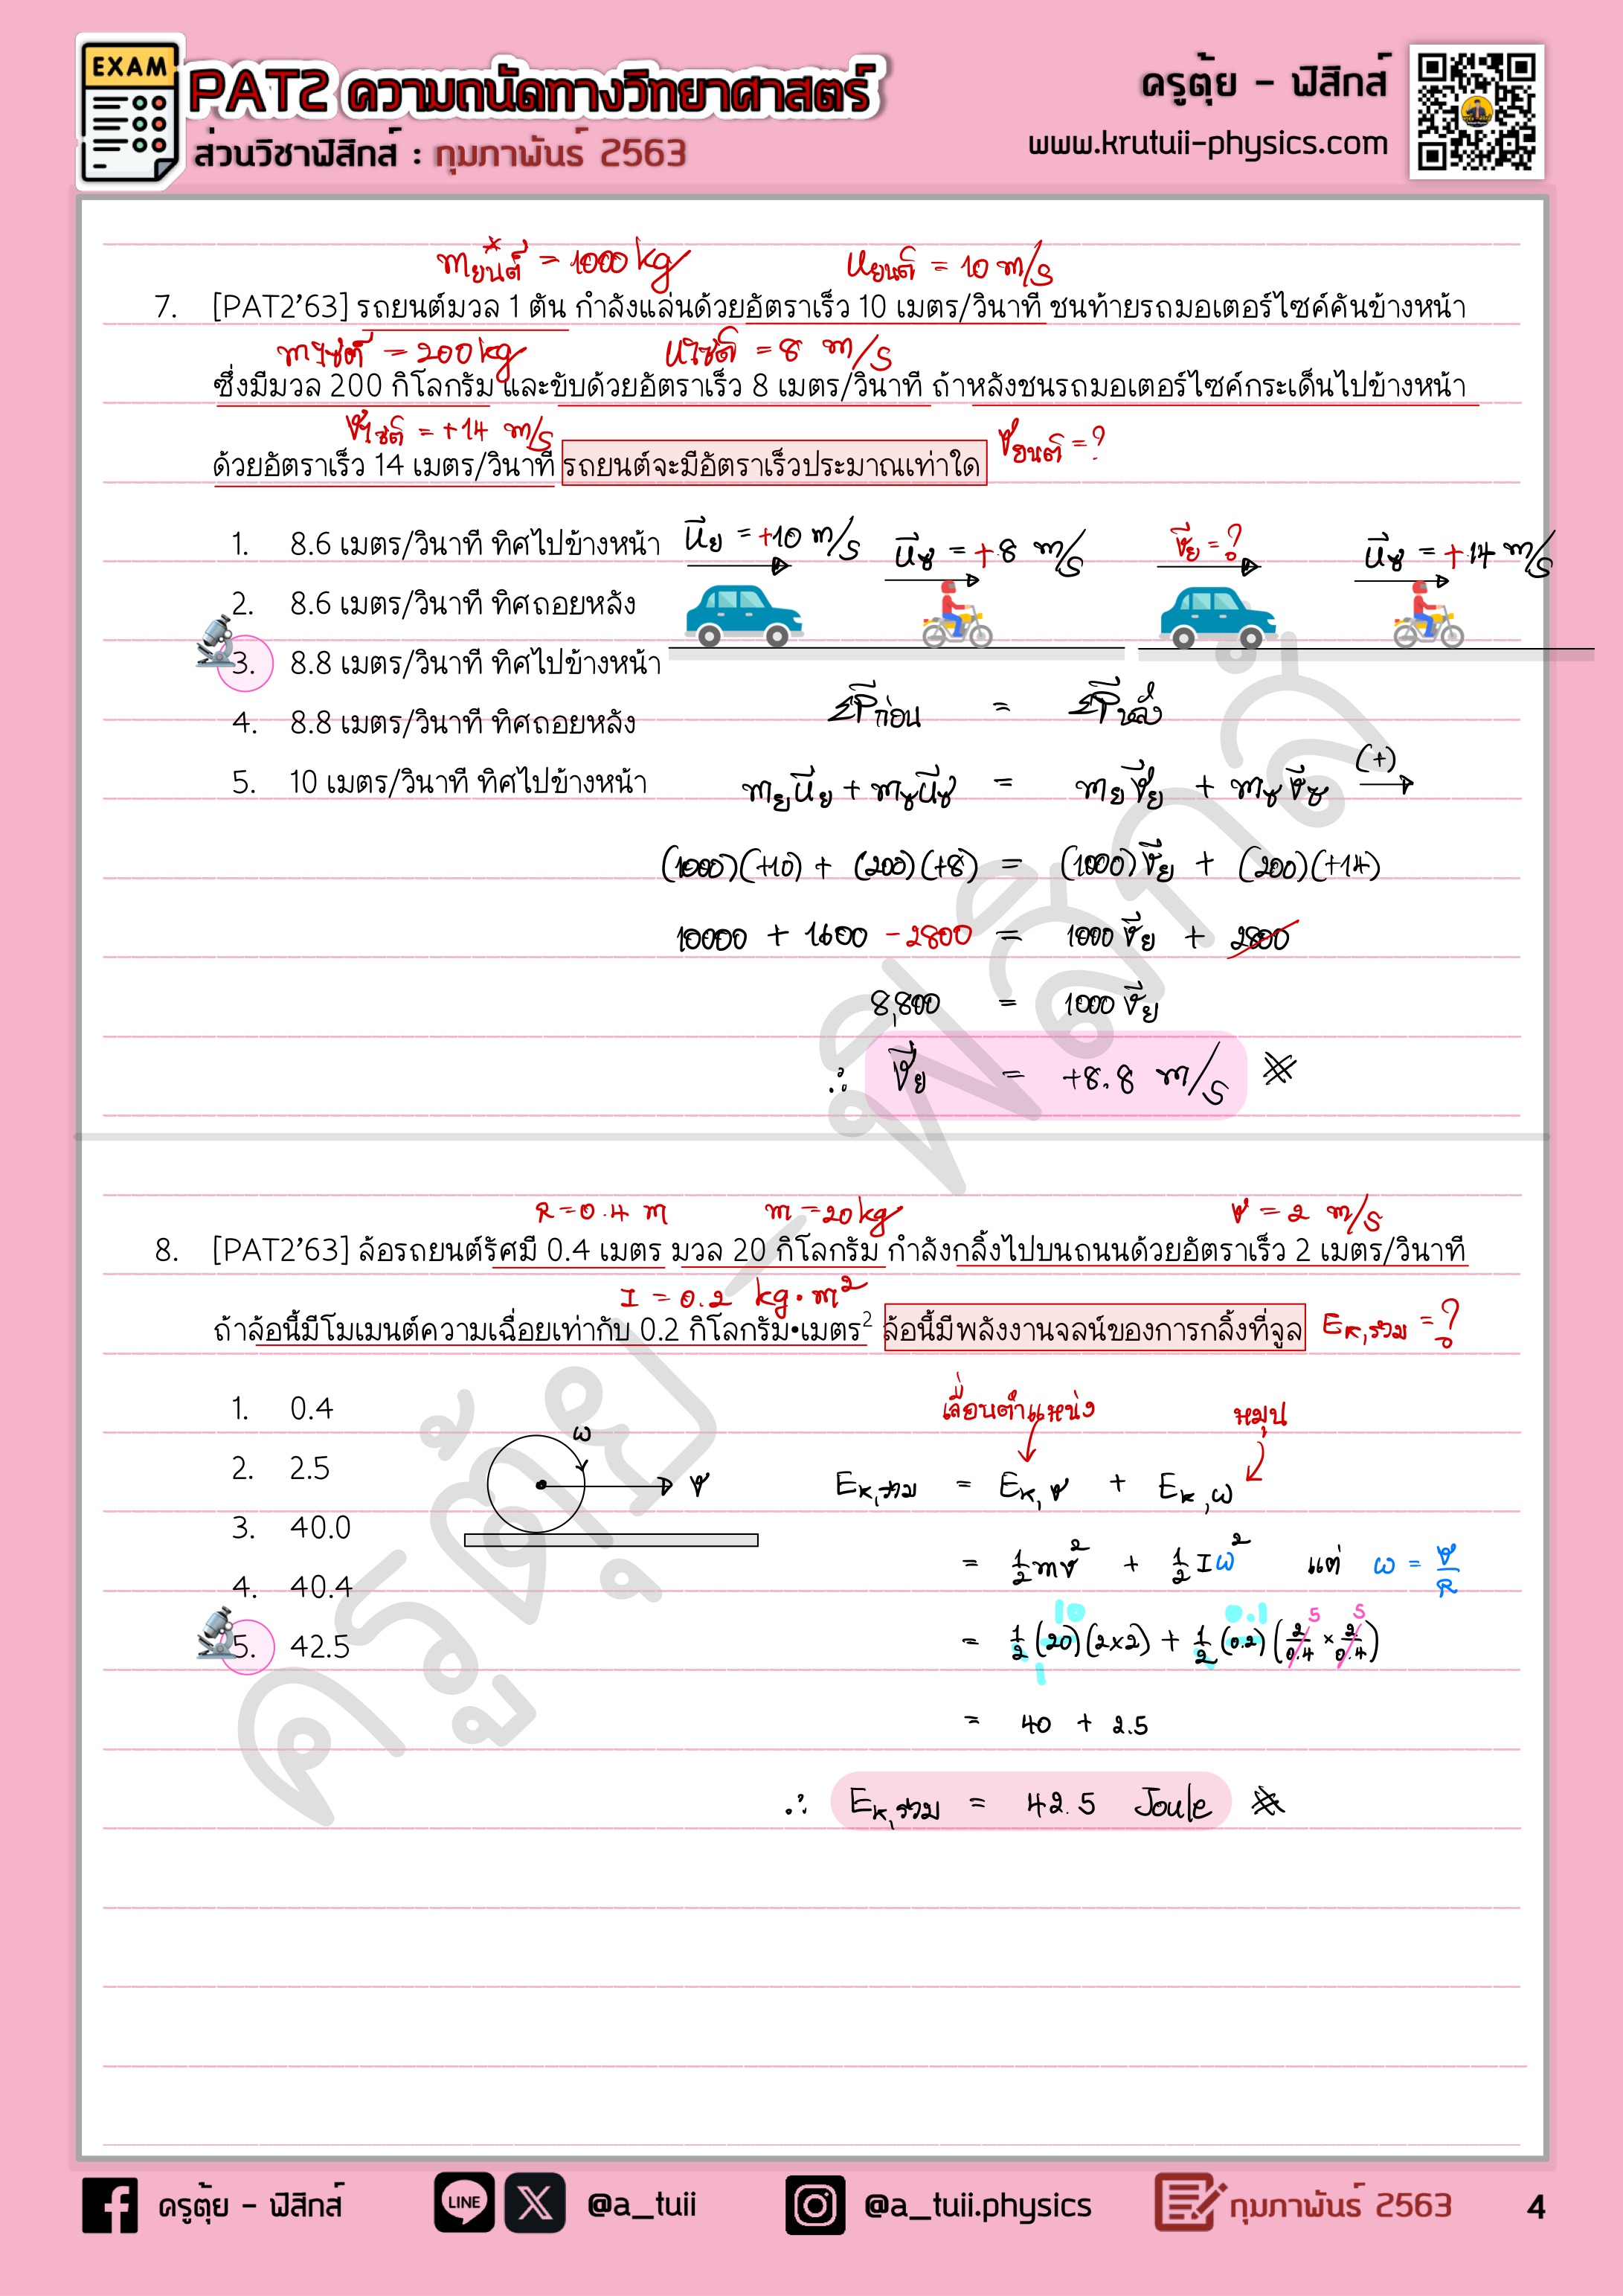 EXAM
PAT2 ความถนัดทางวิทยาศาสตร์
ส่วนวิชาฟิสิกส์ : กุมภาพันธ์ 2563
ครูตุ้ย - ฟิสิกส์
www.krutuii-physics.com
m ยนต์ = 1000 kg
u ยนต์ = 10 m/s
7. [PAT2'63] รถยนต์มวล 1 ตัน กำลังแล่นด้วยอัตราเร็ว 10 เมตร/วินาที ชนท้ายรถมอเตอร์ไซค์คันข้างหน้า
m ไซต์ = 200 kg
u ไซต์ = 8 m/s
ซึ่งมีมวล 200 กิโลกรัม และขับด้วยอัตราเร็ว 8 เมตร/วินาที ถ้าหลังชนรถมอเตอร์ไซค์กระเด็นไปข้างหน้า
v ไซต์ = +14 m/s
v ยนต์ = ?
ด้วยอัตราเร็ว 14 เมตร/วินาที รถยนต์จะมีอัตราเร็วประมาณเท่าใด
1. 8.6 เมตร/วินาที ทิศไปข้างหน้า
2. 8.6 เมตร/วินาที ทิศถอยหลัง
3. 8.8 เมตร/วินาที ทิศไปข้างหน้า
4. 8.8 เมตร/วินาที ทิศถอยหลัง
5. 10 เมตร/วินาที ทิศไปข้างหน้า
u⃗ย = +10 m/s
u⃗ซ = +8 m/s
v⃗ย = ?
u⃗ซ = +14 m/s
ΣP⃗ก่อน = ΣP⃗หลัง
mยu⃗ย + mซu⃗ซ = mยv⃗ย + mซv⃗ซ (+)
(1000)(+10) + (200)(+8) = (1000)v⃗ย + (200)(+14)
10000 + 1600 - 2800 = 1000 v⃗ย + 2800
8,800 = 1000 v⃗ย
∴ v⃗ย = +8.8 m/s
R = 0.4 m
m = 20 kg
v = 2 m/s
8. [PAT2'63] ล้อรถยนต์รัศมี 0.4 เมตร มวล 20 กิโลกรัม กำลังกลิ้งไปบนถนนด้วยอัตราเร็ว 2 เมตร/วินาที
I = 0.2 kg·m²
ถ้าล้อนี้มีโมเมนต์ความเฉื่อยเท่ากับ 0.2 กิโลกรัม•เมตร² ล้อนี้มีพลังงานจลน์ของการกลิ้งที่จูล
Eκ,รวม = ?
1. 0.4
2. 2.5
3. 40.0
4. 40.4
5. 42.5
ω
v
เลื่อนตำแหน่ง
หมุน
Eκ,รวม = Eκ,v + Eκ,ω
= ½mv² + ½Iω² แต่ ω = v/R
10 0.1 5 5
= ½(20)(2×2) + ½(0.2)(2/0.4 × 2/0.4)
1
= 40 + 2.5
∴ Eκ,รวม = 42.5 Joule
ครูตุ้ย - ฟิสิกส์
ครูตุ้ย - ฟิสิกส์
LINE
@a_tuii
@a_tuii.physics
กุมภาพันธ์ 2563
4